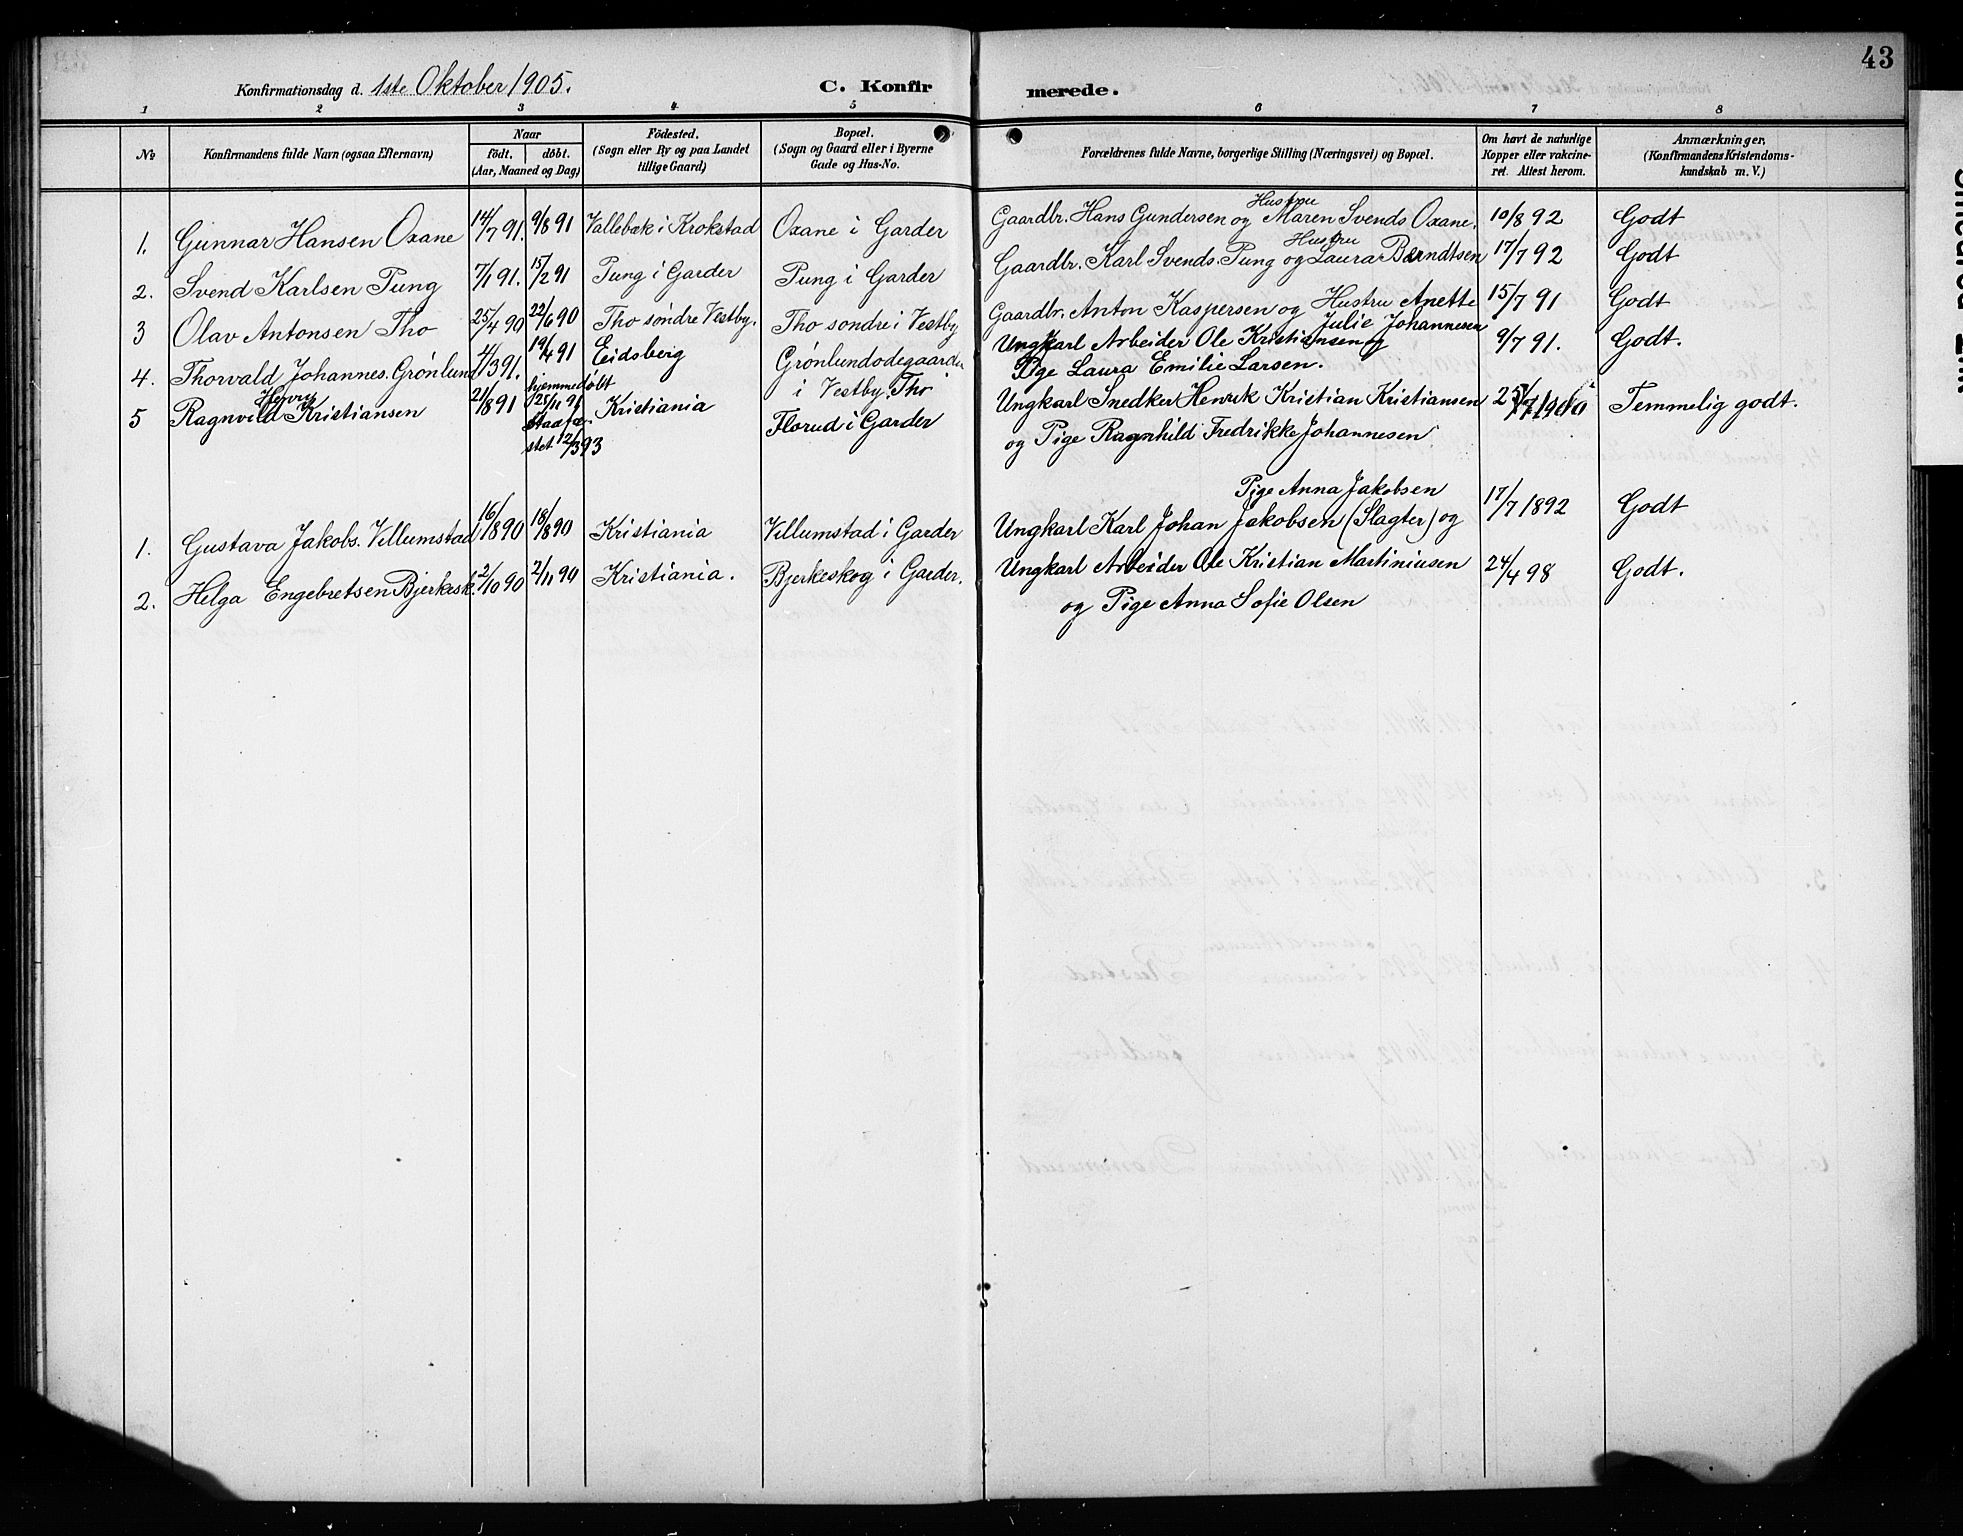 43
Konfirmationsdag d. 1ste Oktober 1905. C. Konfirmerede.
1 2 3 4 5 6 7 8
№
Konfirmandens fulde Navn (ogsaa Efternavn)
Naar
födt. döbt.
(Aar, Maaned og Dag)
Födested.
(Sogn eller By og paa Landet
tillige Gaard)
Bopæl.
(Sogn og Gaard eller i Byerne
Gade og Hus-No.
Forældrenes fulde Navne, borgerlige Stilling (Næringsvei) og Bopæl.
Om havt de naturlige
Kopper eller vakcine-
ret. Attest herom.
Anmærkninger.
(Konfirmandens Kristendoms-
kundskab m. V.)
1. Gunnar Hansen Oxane 14/7 91. 9/8 91 Vallebæk i Krokstad Oxane i Garder Gaardbr. Hans Gundersen og Hustru Maren Svends Oxane. 10/8 92 Godt
2. Svend Karlsen Pung 7/1 91. 15/2 91 Pung i Garder Pung i Garder Gaardbr. Karl Svends. Pung og Hustru Laura Berndtsen 17/7 92 Godt
3 Olav Antonsen Tho 25/4 90 22/6 90 Tho söndre Vestby. Tho söndre i Vestby Gaardbr. Anton Kaspersen og Hustru Anette 15/7 91 Godt
Julie Johannesen
4. Thorvald Johannes. Grönlund 4/3 91. 19/4 91 Eidsberg Grönlundödegaarden Ungkarl Arbeider Ole Kristiansen og 9/7 91. Godt.
i Vestby. Tho Pige Laura Emilie Larsen.
5 Ragnvild Henry Kristiansen 21/8 91 hjemmedöbt Kristiania Florud i Garder Ungkarl Snedker Henrik Kristian Kristiansen 25/7 1900 Temmelig godt.
25/11 91
Stadfæ-
stet 12/3 93
og Pige Ragnhild Fredrikke Johannesen
Pige Anna Jakobsen
1. Gustava Jakobs. Villumstad 16/8 90 18/8 90 Kristiania Villumstad i Garder Ungkarl Karl Johan Jakobsen (Slagter) og 17/7 1892 Godt
2. Helga Engebretsen Bjerkesk. 2/10 90 2/11 90 Kristiania. Bjerkeskog i Garder. Ungkarl Arbeider Ole Kristian Martiniusen 24/4 98 Godt.
og Pige Anna Sofie Olsen